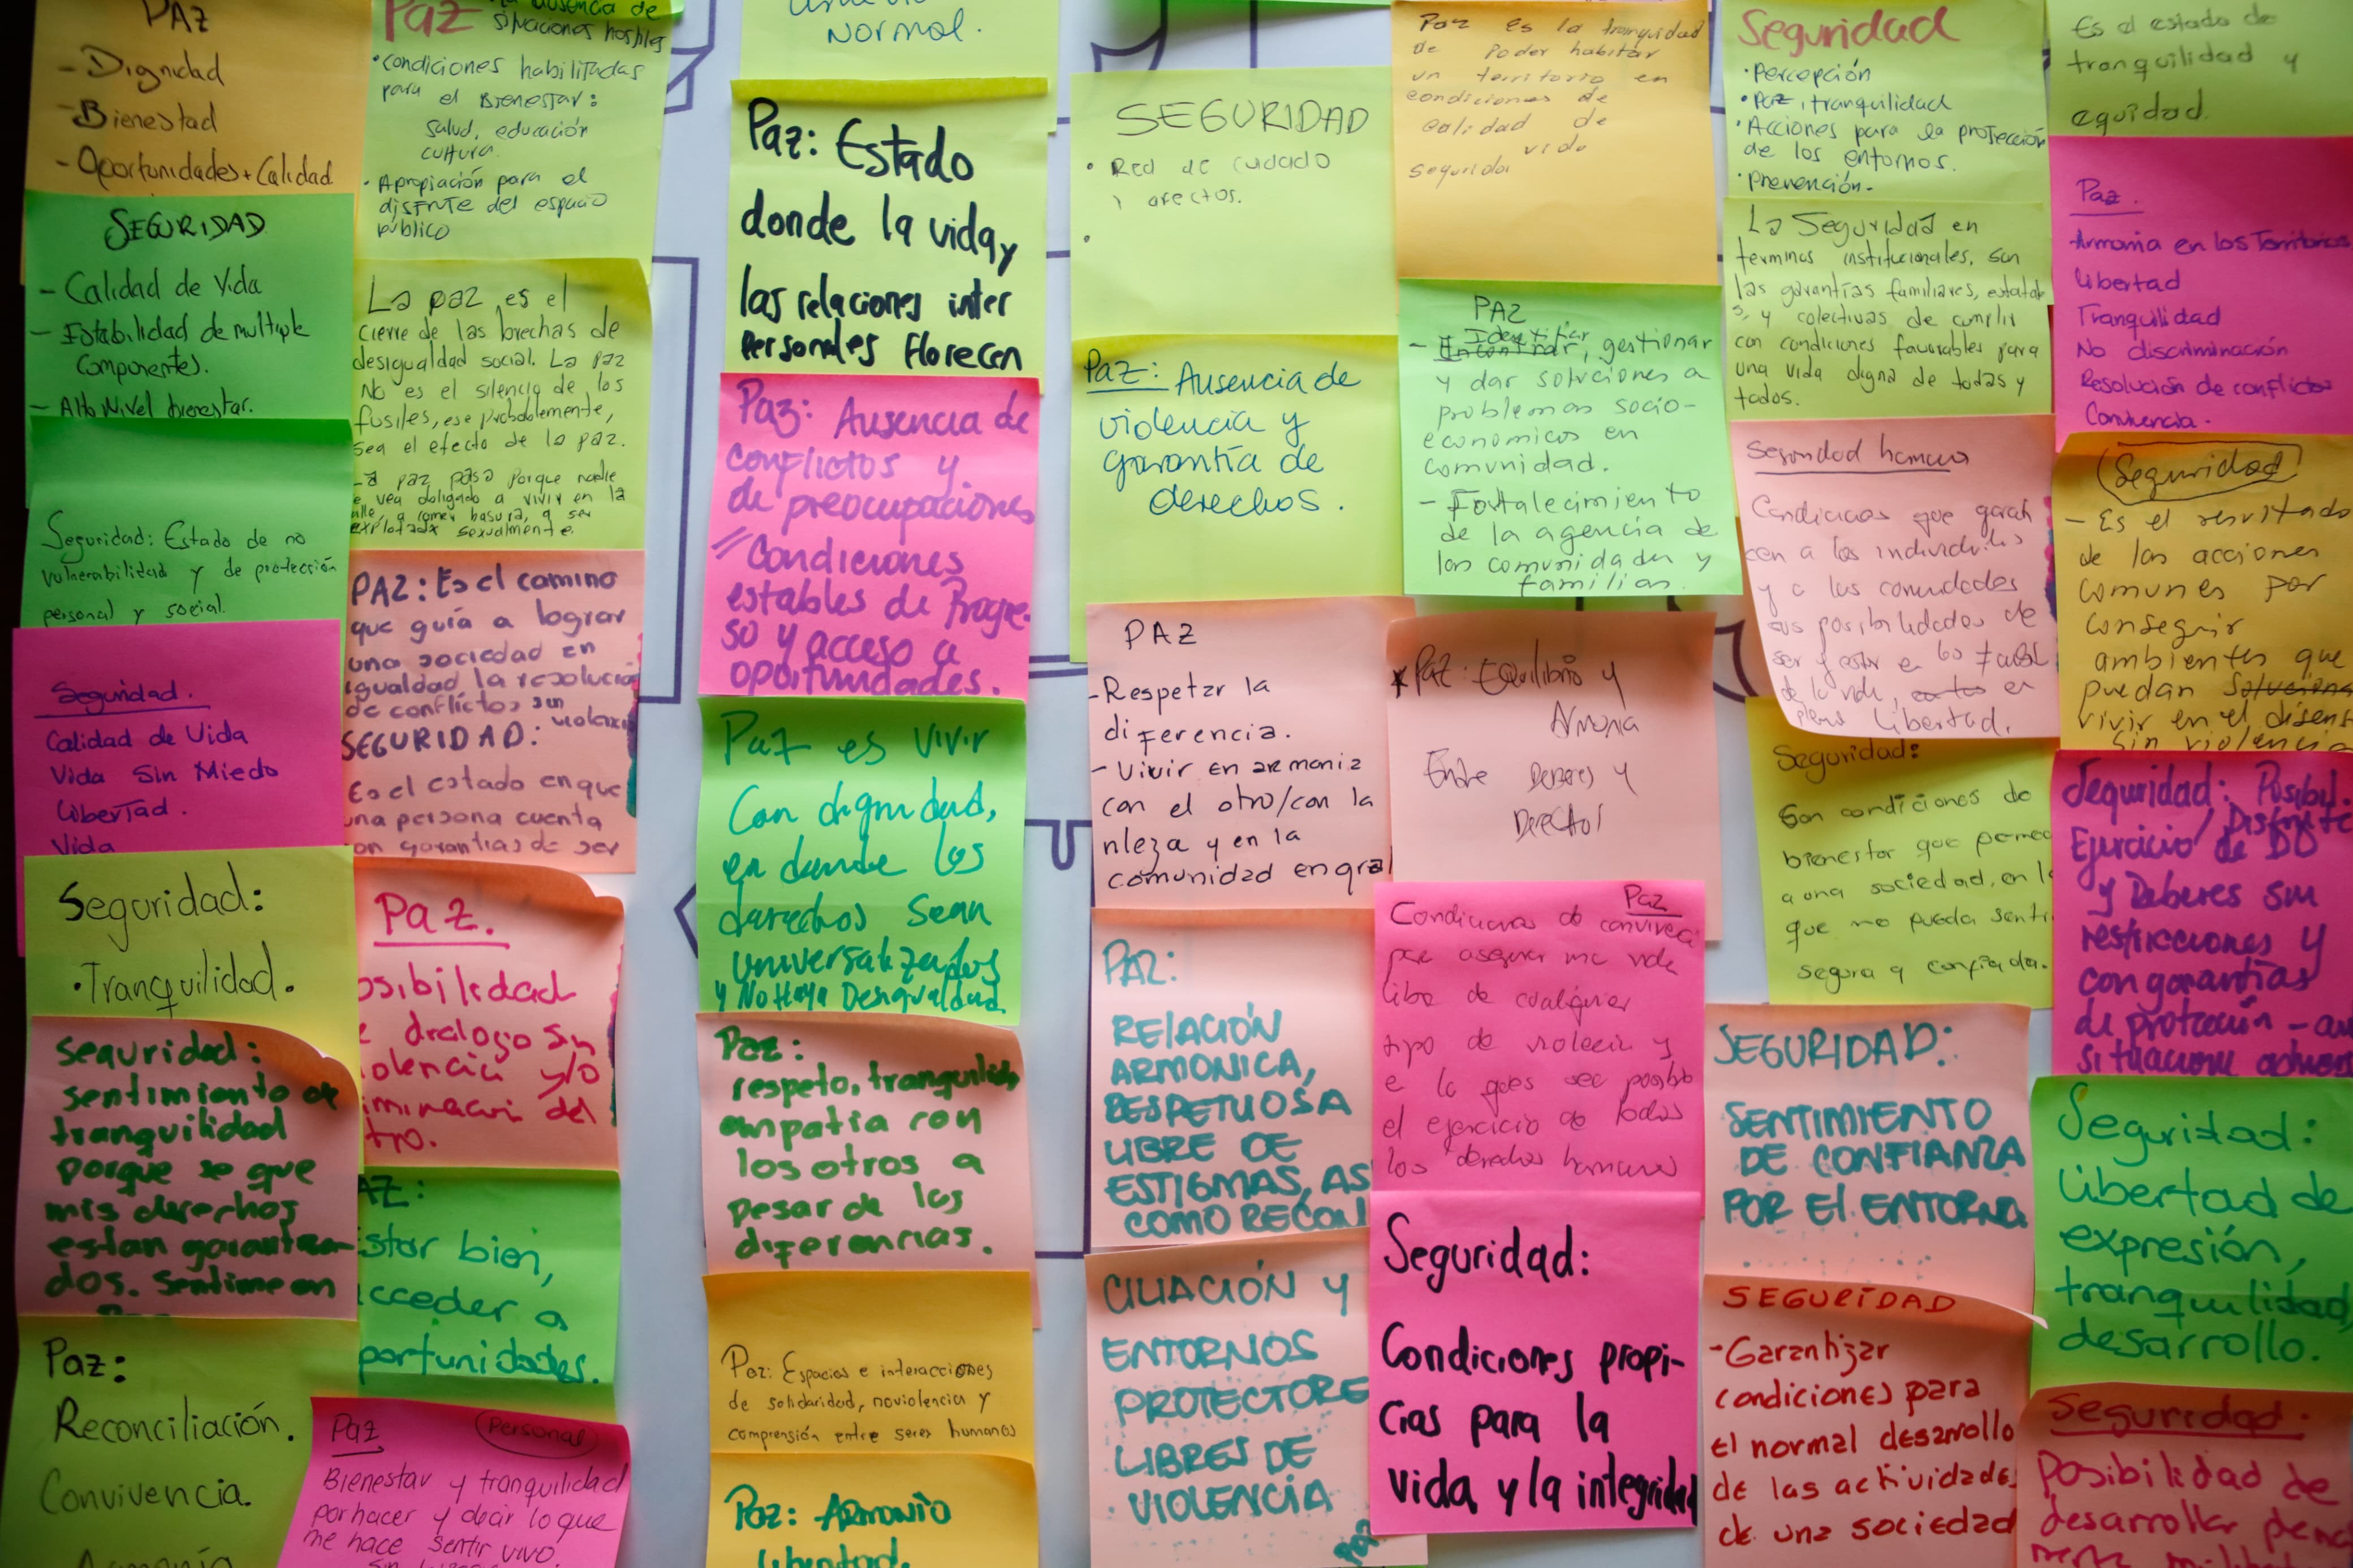 PAZ
- Dignidad
- Bienestad
- Oportunidades + Calidad
SEGURIDAD
- Calidad de Vida
- Estabilidad de multiple
componentes.
- Alto Nivel bienestar.
Seguridad: Estado de no
vulnerabilidad y de protección
personal y social.
Seguridad.
Calidad de Vida
Vida Sin Miedo
Libertad.
Vida
Seguridad:
• Tranquilidad.
seguridad:
sentimiento de
tranquilidad
porque se que
mis derechos
estan garantiza-
dos. Sentirme en
Paz:
Reconciliación.
Convivencia.
Armonía
Paz
ausencia de
situaciones hostiles
• condiciones habilitadas
para el Bienestar:
salud, educación
cultura.
• Apropiación para el
disfrute del espacio
público
La paz es el
cierre de las brechas de
desigualdad social. La paz
No es el silencio de los
fusiles, ese probablemente,
sea el efecto de la paz.
La paz pasa porque nadie
se vea obligado a vivir en la
calle, a comer basura, a ser
explotadx sexualmente.
PAZ: Es el camino
que guía a lograr
una sociedad en
igualdad la resolución
de conflictos sin
violencia
SEGURIDAD:
Es el estado en que
una persona cuenta
con garantías de ser
Paz.
osibilidad
e dialogo sin
olencia y/o
iminacion del
tro.
AZ:
star bien,
cceder a
portunidades.
Paz
Personal
Bienestar y tranquilidad
por hacer y decir lo que
me hace sentir vivo
sin
NORMAL.
Paz: Estado
donde la vida y
las relaciones inter
personales florecen
Paz: Ausencia de
conflictos y
de preocupaciones
// Condiciones
estables de Progre-
so y acceso a
oportunidades.
Paz es vivir
Con dignidad,
en donde los
derechos sean
universalizados
y No Haya Desigualdad.
Paz:
respeto, tranquilidad,
empatia con
los otros a
pesar de las
diferencias.
Paz: Espacios e interacciones
de solidaridad, noviolencia y
comprensión entre seres humanos
Paz: Armonía
libertad.
SEGURIDAD
• Red de cuidado
y afectos.
•
Paz: Ausencia de
violencia y
garantía de
derechos.
PAZ
- Respetar la
diferencia.
- Vivir en armonia
con el otro/con la
nleza y en la
comunidad en gral
PAZ:
RELACIÓN
ARMONICA,
RESPETUOSA
LIBRE DE
ESTIGMAS, AS
COMO RECON
CILIACIÓN Y
ENTORNOS
PROTECTORE
LIBRES DE
VIOLENCIA
Paz es la tranquidad
de poder habitar
un territorio en
condiciones de
calidad de
vida
segurida
PAZ
- Identificar
Encontrar, gestionar
y dar soluciones a
problemas socio-
economicos en
comunidad.
- Fortalecimiento
de la agencia de
las comunidades y
familias.
* Paz: Equilibrio y
Armonia
Entre Deberes y
Derechos
Paz
Condiciones de convivenci
para asegurar una vida
libre de cualquier
tipo de violencia y
e la que sea posible
el ejercicio de todos
los derechos humanos
Seguridad:
Condiciones propi-
cias para la
vida y la integridad
Seguridad
• Percepción
• Paz, tranquilidad
• Acciones para la protección
de los entornos.
• Prevención.
La Seguridad en
terminos institucionales, son
las garantías familiares, estatale
s, y colectivas de cumplir
con condiciones favorables para
una vida digna de todas y
todos.
Seguridad humana
Condiciones que garanti
cen a los individuos
y a las comunidades
sus posibilidades de
ser y estar en
de la vida, en
plena libertad.
Seguridad:
Son condiciones de
bienestar que permea
a una sociedad, en la
que me pueda senti
segura y confiada.
SEGURIDAD:
SENTIMIENTO
DE CONFIANZA
POR El ENTORNO
SEGURIDAD
- Garantizar
condiciones para
El normal desarrollo
de las actividades
de una sociedad
Es el estado de
tranquilidad y
equidad.
Paz.
Armonia en los Territorios
Libertad
Tranquilidad
No discriminación
Resolución de conflictos
Convivencia.
Seguridad
- Es el resultado
de las acciones
comunes por
conseguir
ambientes que
puedan
vivir en el disens
sin violencia
Seguridad: Posibil.
Ejercicio/Disfrute
de DD
y Deberes sin
restricciones y
con garantías
de protección - an
situaciones advers
Seguridad:
Libertad de
expresión,
tranquilidad,
desarrollo.
Seguridad.
Posibilidad de
desarrollar